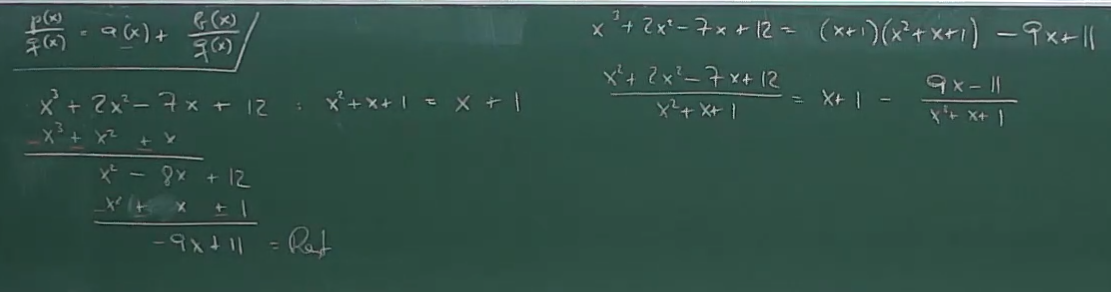 p(x)/q(x) = a(x) + b(x)/q(x)
x³ + 2x² - 7x + 12 : x² + x + 1 = x + 1
- x³ + x² + x
x² - 8x + 12
- x² + x + 1
-9x + 11 = Rest
x³ + 2x² - 7x + 12 = (x+1)(x²+x+1) - 9x + 11
x² + 2x² - 7x + 12 / x² + x + 1 = x + 1 - 9x - 11 / x² + x + 1